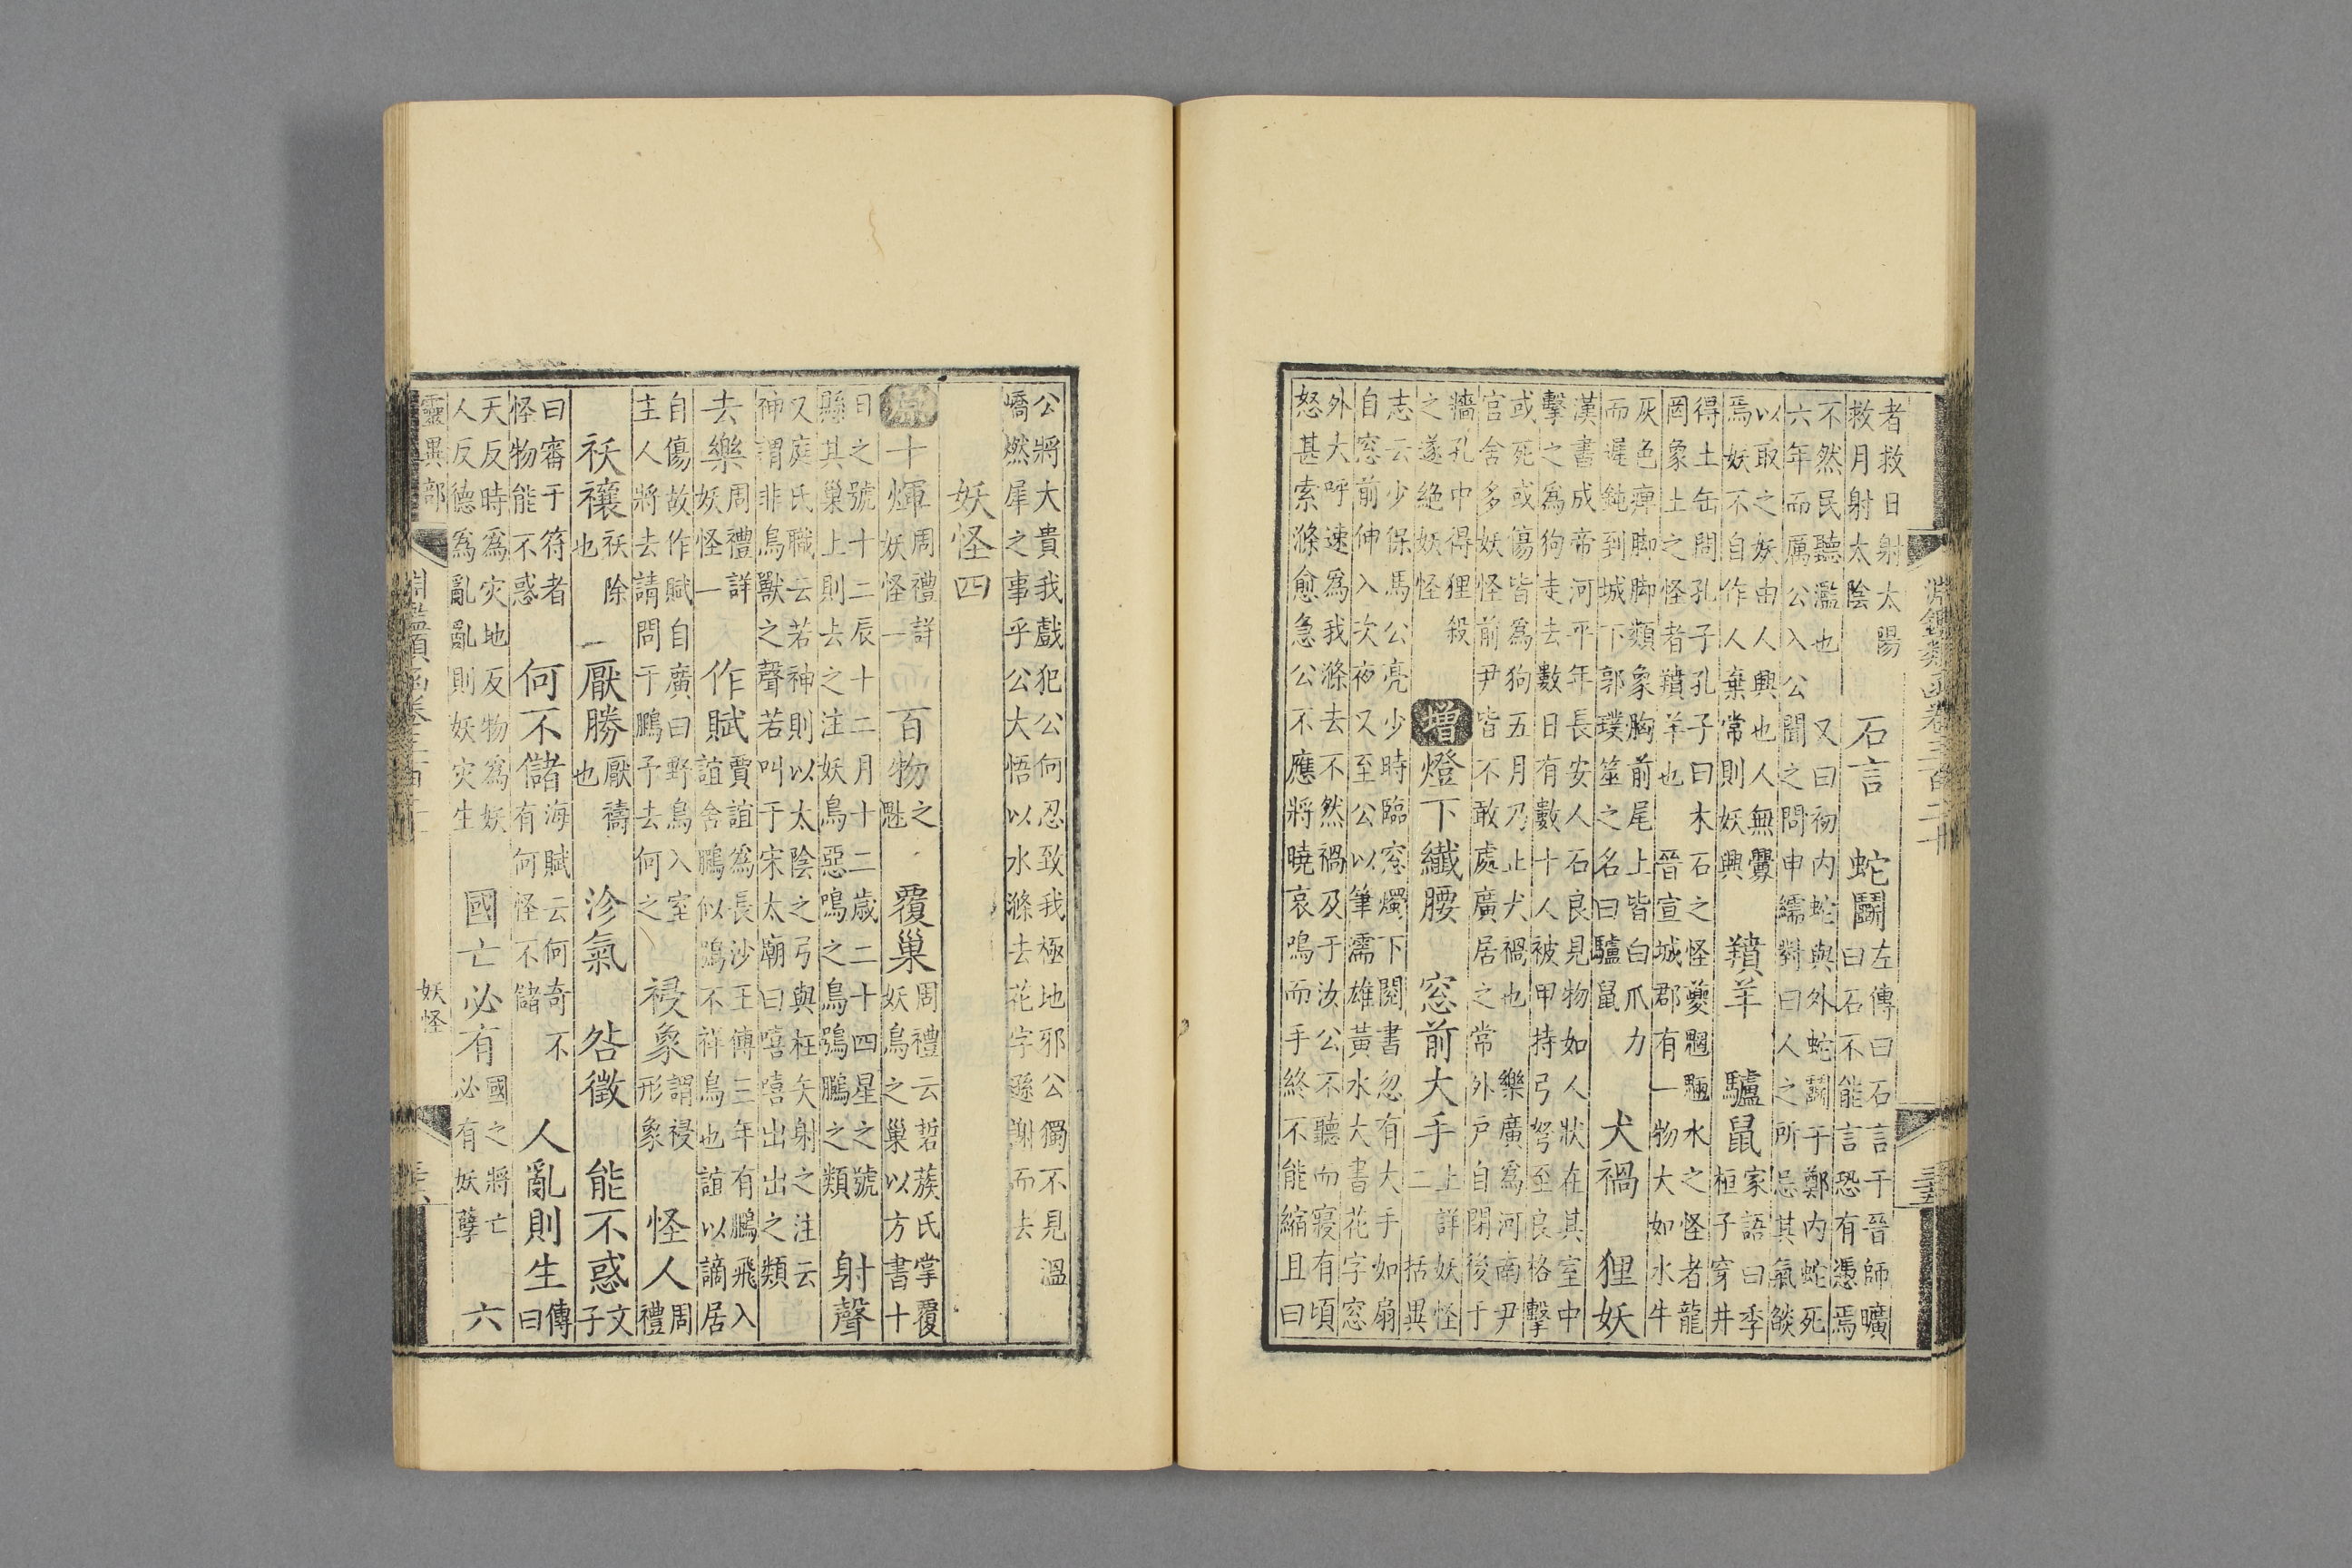 淵鑑類函卷三百二十
三五
者救日射太陽
救月射太陰
石言 蛇鬭
左傳曰石言于晉師曠
曰石不能言恐有憑焉
不然民聽濫也 又曰初内蛇與外蛇鬭于鄭内蛇死
六年而厲公入公聞之問申繻對曰人之所忌其氣燄
以取之妖由人興也人無釁
焉妖不自作人棄常則妖興
羵羊 驢鼠
家語曰季
桓子穿井
得土缶問孔子孔子曰木石之怪夔魍魎水之怪者龍
罔象土之怪者羵羊也 晉宣城郡有一物大如水牛
灰色痺脚脚類象胸前尾上皆白爪力
而遲鈍到城下郭璞筮之名曰驢鼠
犬禍 狸妖
漢書成帝河平年長安人石良見物如人狀在其室中
擊之爲狗走去數日有數十人被甲持弓弩至良格擊
或死或傷皆爲狗五月乃止犬禍也 樂廣爲河南尹
官舍多妖怪前尹皆不敢處廣居之常外戶自閉後于
牆孔中得狸殺
之遂絶妖怪
增燈下纖腰 窓前大手
上詳妖怪
二 括異
志云少保馬公亮少時臨窓燭下閱書忽有大手如扇
自窓前伸入次夜又至公以筆濡雄黃水大書花字窓
外大呼速爲我滌去不然禍及于汝公不聽而寢有頃
怒甚索滌愈急公不應將曉哀鳴而手終不能縮且曰
公將大貴我戲犯公何忍致我極地邪公獨不見溫
嶠燃犀之事乎公大悟以水滌去花字遜謝而去
妖怪四
原十煇
周禮詳
妖怪一
百物
之
魅
覆巢
周禮云硩蔟氏掌覆
妖鳥之巢以方書十
日之號十二辰十二月十二歲二十四星之號
縣其巢上則去之注妖鳥惡鳴之鳥鴞鵩之類
射聲
又庭氏職云若神則以太陰之弓與枉矢射之注云
神謂非鳥獸之聲若叫于宋太廟曰嘻嘻出出之類
去樂
周禮詳
妖怪一
作賦
賈誼爲長沙王傅三年有鵩飛入
誼舍鵩似鴞不祥鳥也誼以謫居
自傷故作賦自廣曰野鳥入室
主人將去請問于鵩子去何之
祲象
謂祲
形象
怪人
周
禮
祆禳
祆除
也
厭勝
厭禱
也
沴氣 咎徵 能不惑
文
子
曰審于符者
怪物能不惑
何不儲
海賦云何奇不
有何怪不儲
人亂則生
傳
曰
天反時爲灾地反物爲妖
人反德爲亂亂則妖灾生
國亡必有
國之將亡
必有妖孽
六
靈異部
妖怪